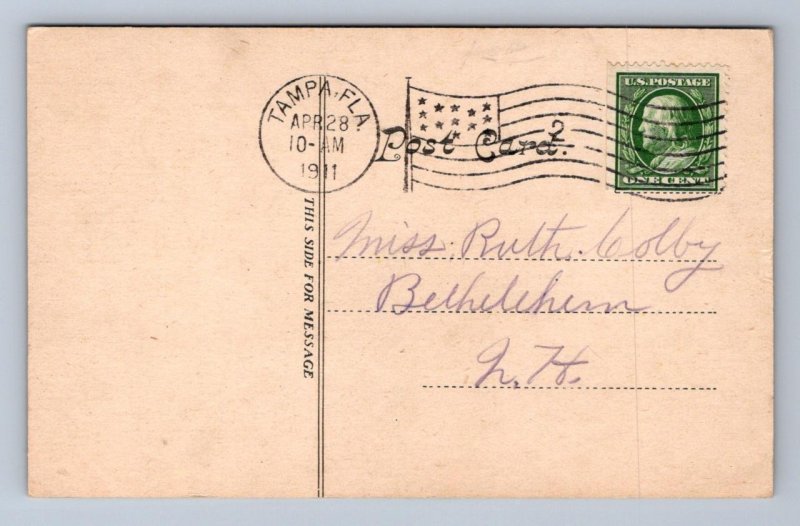 TAMPA, FLA.
APR 28
10-AM
1911
Post Card.
2
U.S. POSTAGE
ONE CENT
THIS SIDE FOR MESSAGE
Miss Ruth Colby
Bethelehem
N.H.